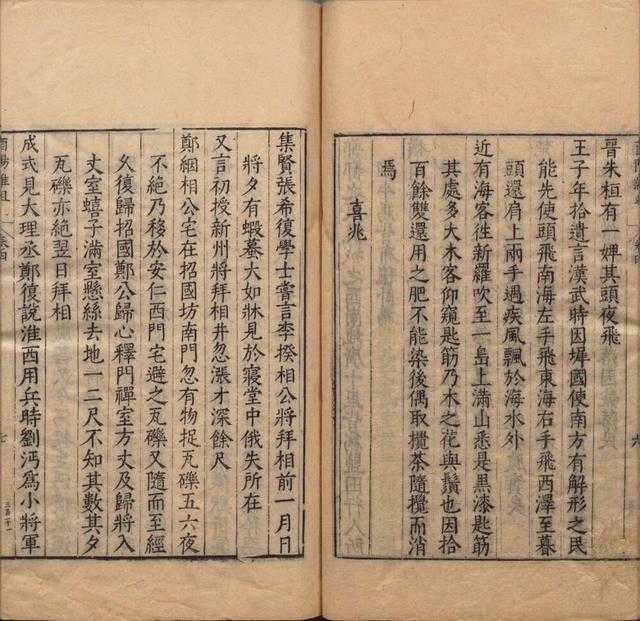 晉朱桓有一婢其頭夜飛
王子年拾遺言漢武時因墀國使南方有解形之民
能先使頭飛南海左手飛東海右手飛西澤至暮
頭還肩上兩手遇疾風飄於海水外
近有海客徃新羅吹至一島上滿山悉是黑漆匙筯
其處多大木客仰窺匙筯乃木之花與鬚也因拾
百餘雙還用之肥不能染後偶取攪茶隨攪而消
焉
喜兆
集賢張希復學士嘗言李揆相公將拜相前一月日
將夕有蝦蟇大如牀見於寢堂中俄失所在
又言初授新州將拜相井忽漲才深餘尺
鄭絪相公宅在招國坊南門忽有物捉瓦礫五六夜
不絶乃移於安仁西門宅避之瓦礫又隨而至經
久復歸招國鄭公歸心釋門禪室方丈及歸將入
丈室蟢子滿室懸絲去地一二尺不知其數其夕
瓦礫亦絶翌日拜相
成式見大理丞鄭復說淮西用兵時劉沔爲小將軍